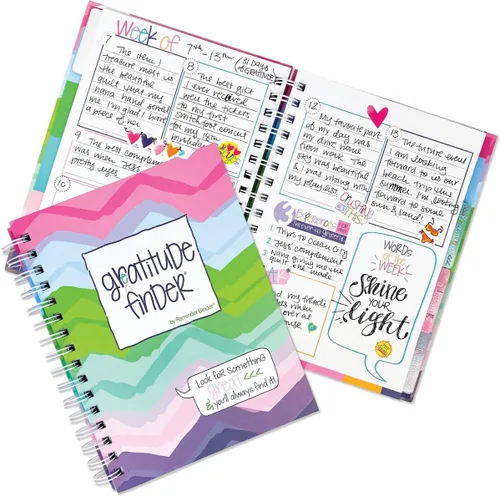 Week of 7th-13th
31 Days
of GRATITUDE
7
The item I
treasure most is
the beautiful
quilt that my
nana hand sewed
me. I'm glad I have
a piece
8
The best gift
I ever received
were the tickets
to my first
concert
for my 18th
birthday
9
The best compliment
was when Jess
pretty
10
12
My favorite part
of my day was
my drive home
from work. The
sky was beautiful
& I was vibing with
my playlist
13
The future event
I am looking
forward to is our
beach trip this
summer. I'm looking
forward to some
sun & sand!
3
EXPERIENCES
1. Trips to Ocean City
2. Jess' complement
3. Nana giving me the
quilt she made
my friends
when
over at
house
WORDS
of the
WEEK
Shine
YOUR
light
gratitude
finder®
by Reminder Binder®
Look for something
great <<<
& you'll always find it!